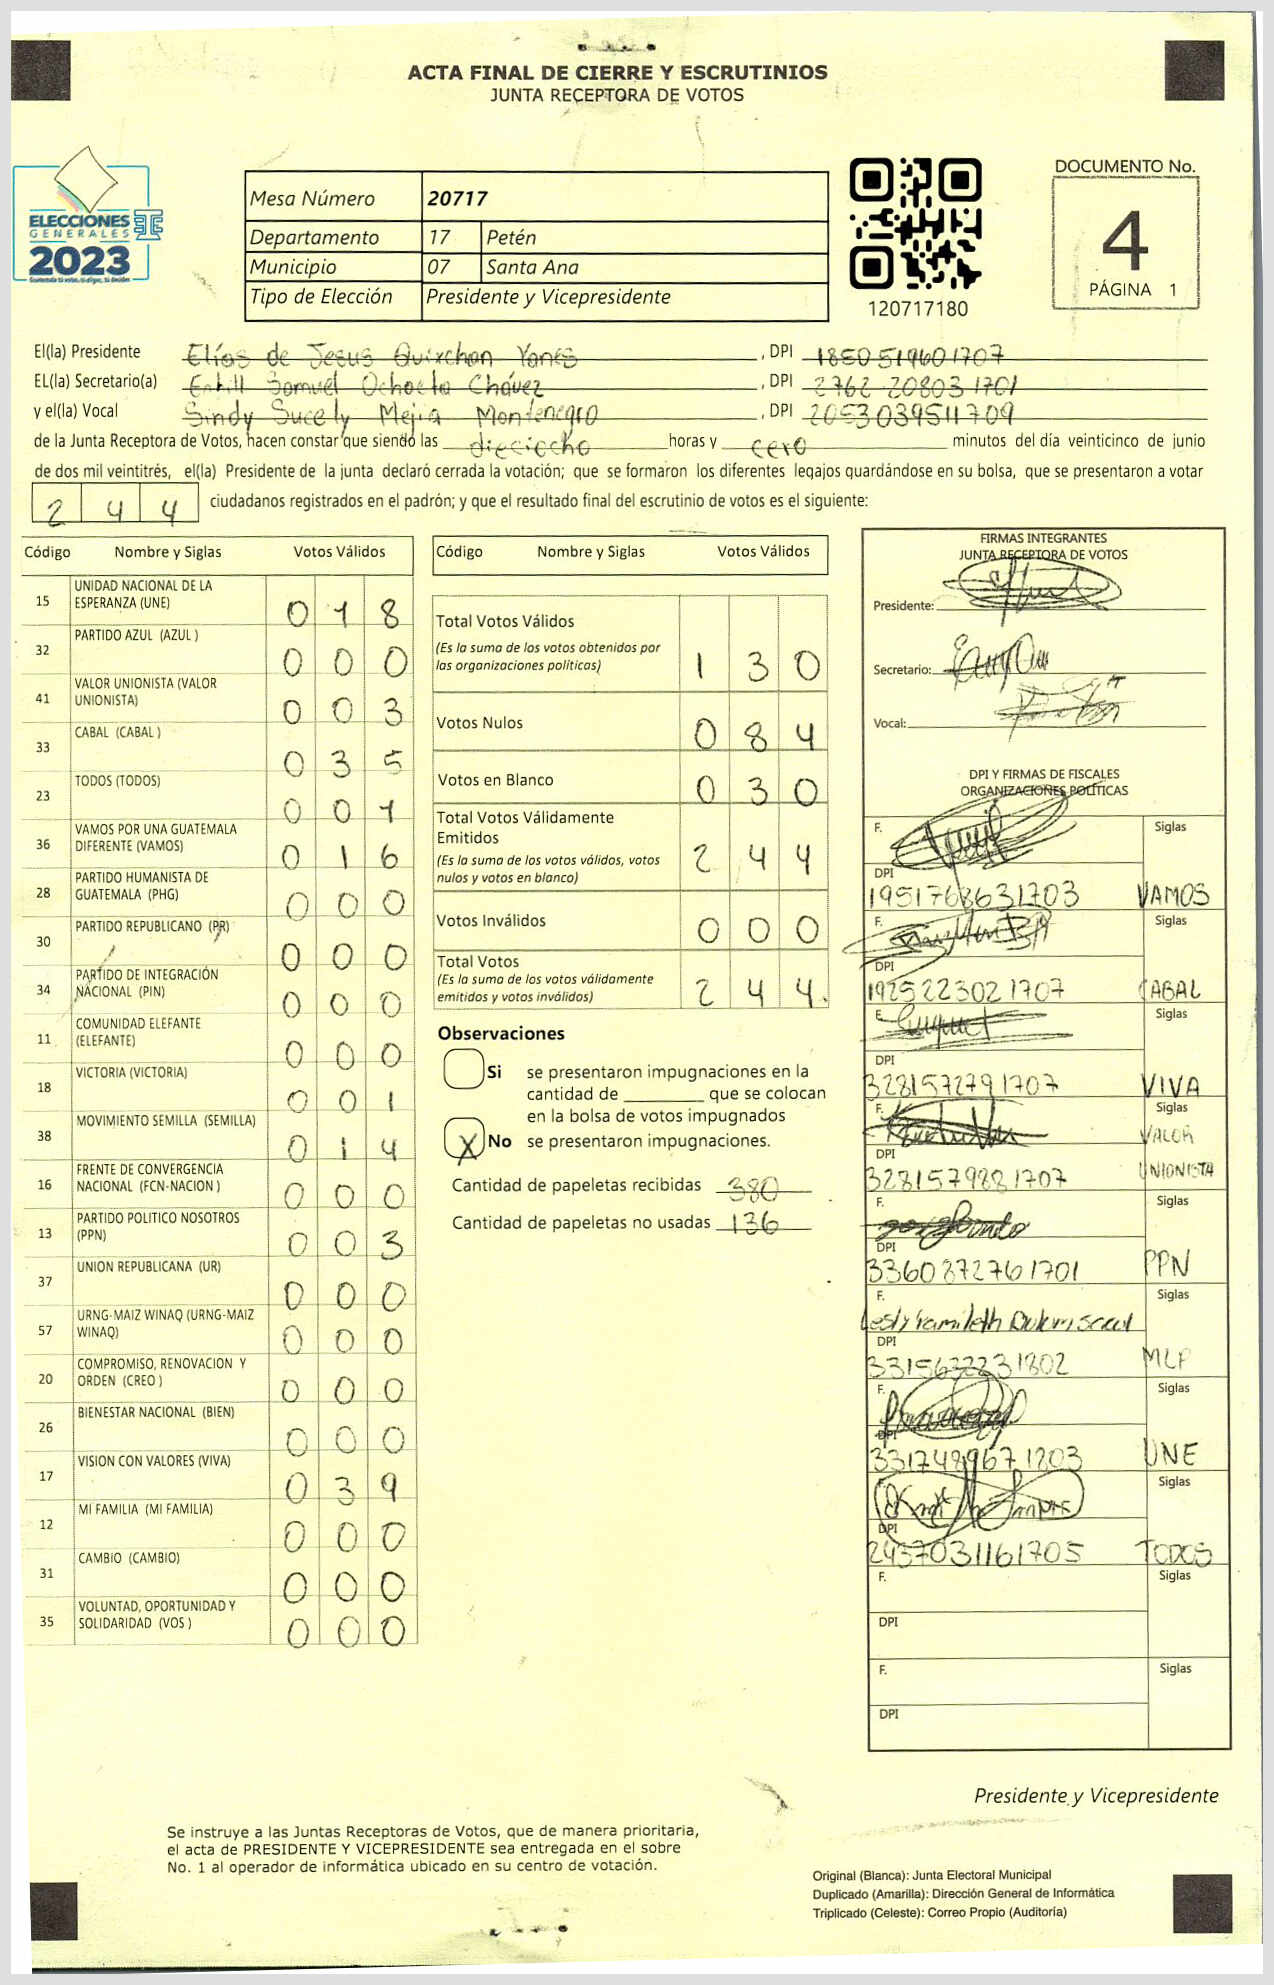 ACTA FINAL DE CIERRE Y ESCRUTINIOS
JUNTA RECEPTORA DE VOTOS
ELECCIONES
GENERALES
2023
Mesa Número 20717
Departamento 17 Petén
Municipio 07 Santa Ana
Tipo de Elección Presidente y Vicepresidente
120717180
DOCUMENTO No.
4
PÁGINA 1
El(la) Presidente Elías de Jesus Quixchan Yanes , DPI 1850519601707
EL(la) Secretario(a) Samuel Ochaeta Chávez , DPI 2762 20803 1701
y el(la) Vocal Sindy Sucely Mejia Montenegro , DPI 2053039511709
de la Junta Receptora de Votos, hacen constar que siendo las dieciocho horas y cero minutos del día veinticinco de junio
de dos mil veintitrés, el(la) Presidente de la junta declaró cerrada la votación; que se formaron los diferentes legajos guardándose en su bolsa, que se presentaron a votar
2 4 4 ciudadanos registrados en el padrón; y que el resultado final del escrutinio de votos es el siguiente:
Código Nombre y Siglas Votos Válidos
15 UNIDAD NACIONAL DE LA
ESPERANZA (UNE) 0 1 8
32 PARTIDO AZUL (AZUL ) 0 0 0
41 VALOR UNIONISTA (VALOR
UNIONISTA) 0 0 3
33 CABAL (CABAL ) 0 3 5
23 TODOS (TODOS) 0 0 1
36 VAMOS POR UNA GUATEMALA
DIFERENTE (VAMOS) 0 1 6
28 PARTIDO HUMANISTA DE
GUATEMALA (PHG) 0 0 0
30 PARTIDO REPUBLICANO (PR) 0 0 0
34 PARTIDO DE INTEGRACIÓN
NACIONAL (PIN) 0 0 0
11 COMUNIDAD ELEFANTE
(ELEFANTE) 0 0 0
18 VICTORIA (VICTORIA) 0 0 1
38 MOVIMIENTO SEMILLA (SEMILLA) 0 1 4
16 FRENTE DE CONVERGENCIA
NACIONAL (FCN-NACION ) 0 0 0
13 PARTIDO POLITICO NOSOTROS
(PPN) 0 0 3
37 UNION REPUBLICANA (UR) 0 0 0
57 URNG-MAIZ WINAQ (URNG-MAIZ
WINAQ) 0 0 0
20 COMPROMISO, RENOVACION Y
ORDEN (CREO ) 0 0 0
26 BIENESTAR NACIONAL (BIEN) 0 0 0
17 VISION CON VALORES (VIVA) 0 3 9
12 MI FAMILIA (MI FAMILIA) 0 0 0
31 CAMBIO (CAMBIO) 0 0 0
35 VOLUNTAD, OPORTUNIDAD Y
SOLIDARIDAD (VOS ) 0 0 0
Código Nombre y Siglas Votos Válidos
Total Votos Válidos
(Es la suma de los votos obtenidos por
las organizaciones políticas) 1 3 0
Votos Nulos 0 8 4
Votos en Blanco 0 3 0
Total Votos Válidamente
Emitidos
(Es la suma de los votos válidos, votos
nulos y votos en blanco) 2 4 4
Votos Inválidos 0 0 0
Total Votos
(Es la suma de los votos válidamente
emitidos y votos inválidos) 2 4 4.
Observaciones
Si se presentaron impugnaciones en la
cantidad de ________ que se colocan
en la bolsa de votos impugnados
X No se presentaron impugnaciones.
Cantidad de papeletas recibidas 380
Cantidad de papeletas no usadas 136
FIRMAS INTEGRANTES
JUNTA RECEPTORA DE VOTOS
Presidente:
Secretario:
Vocal:
DPI Y FIRMAS DE FISCALES
ORGANIZACIONES POLÍTICAS
F. Siglas
DPI
1951768631703 VAMOS
F. Siglas
DPI
192522302 1707 CABAL
F. Siglas
DPI
328157279 1707 VIVA
F. Siglas
VALOR
DPI
328157988 1707 UNIONISTA
F. Siglas
DPI
3360872761701 PPN
F. Siglas
DPI
MLP
F. Siglas
DPI
UNE
F. Siglas
DPI
2437031161705 TODOS
F. Siglas
DPI
F. Siglas
DPI
Presidente y Vicepresidente
Se instruye a las Juntas Receptoras de Votos, que de manera prioritaria,
el acta de PRESIDENTE Y VICEPRESIDENTE sea entregada en el sobre
No. 1 al operador de informática ubicado en su centro de votación.
Original (Blanca): Junta Electoral Municipal
Duplicado (Amarilla): Dirección General de Informática
Triplicado (Celeste): Correo Propio (Auditoría)